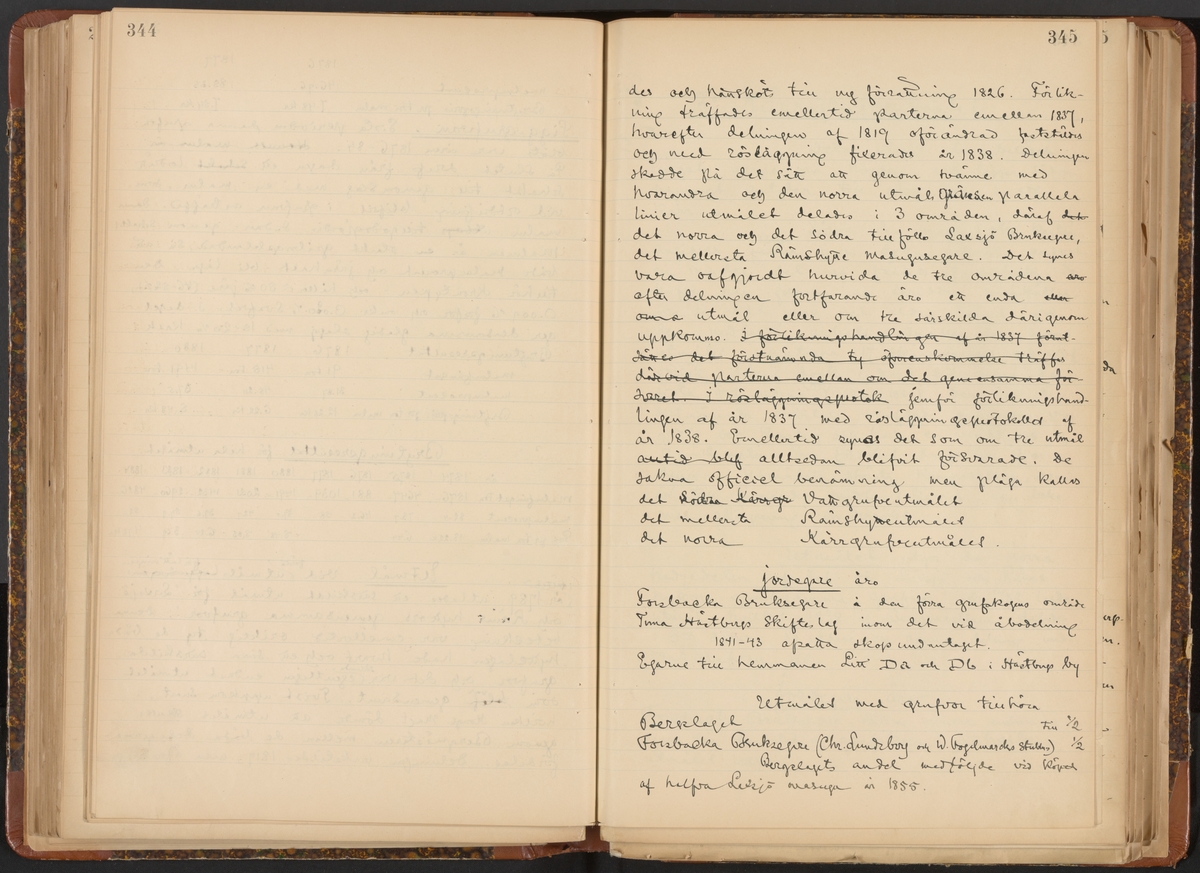 344
345
des och hänsköts till ny förrättning 1826. Förlik-
ning träffades emellertid parterna emellan 1837,
hvarefter delningen af 1819 oförändrad fastställdes
och med rösläggning fixerades år 1838. Delningen
skedde på det sätt att genom tvänne med
hvarandra och den norra utmåls gränsen parallela
linier utmålet delades i 3 områden, däraf
det norra och det södra tillföllo Laxsjö Bruksegare,
det mellersta Rämshytte Masugnsegare. Det synes
vara oafgjordt huruvida de tre områdena äro
efter delningen fortfarande äro ett enda eller
utmål eller om tre särskilda därigenom
uppkommo. I förlikningshandlingen af år 1837 förut-
sättes det förstnämnda ty öfverenskommelse träffas
därvid parterna emellan om det gemensamma för
svaret. I rösläggningsprotok jemför förlikningshand-
lingen af år 1837 med rösläggningsprotokollet af
år 1838. Emellertid synes det som om tre utmål
alltid blef alltsedan blifvit försvarade. De
sakna officiel benämning men pläga kallas
det södra Kärrgr Vattgrufveutmålet
det mellersta Rämshytteutmålet
det norra Kärrgrufveutmålet.
jordegare äro
Forsbacka Bruksegare å den förra grufskogens område
Tuna Hästbergs Skifteslag inom det vid åbodelning
1841-43 afsatta skogsundantaget.
Egarne till hemmanen Litt Da och Db i Hästbergs by
Utmålet med grufvor tillhöra
Bergslaget till 1/2
Forsbacka Bruksegare (Chr. Lundeberg och W. Gagelmarcks Sterbhus) 1/2
Bergslagets andel medföljde vid köpet
af halfva Laxsjö masugn år 1855.